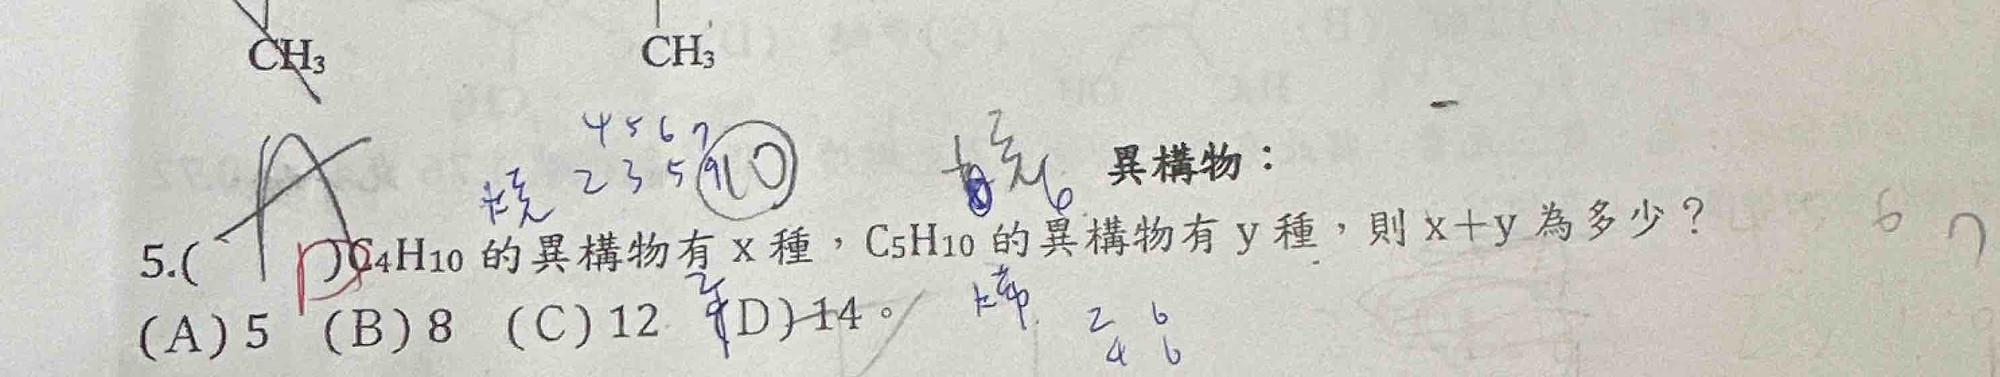 CH₃ CH₃
4 5 6 7
烷 2 3 5 9 10
烷 6 異構物：
5.( A D )C₄H₁₀ 的異構物有 x 種，C₅H₁₀ 的異構物有 y 種，則 x＋y 為多少？
2 烯 2 6
4 6
(A) 5 (B) 8 (C) 12 (D) 14。